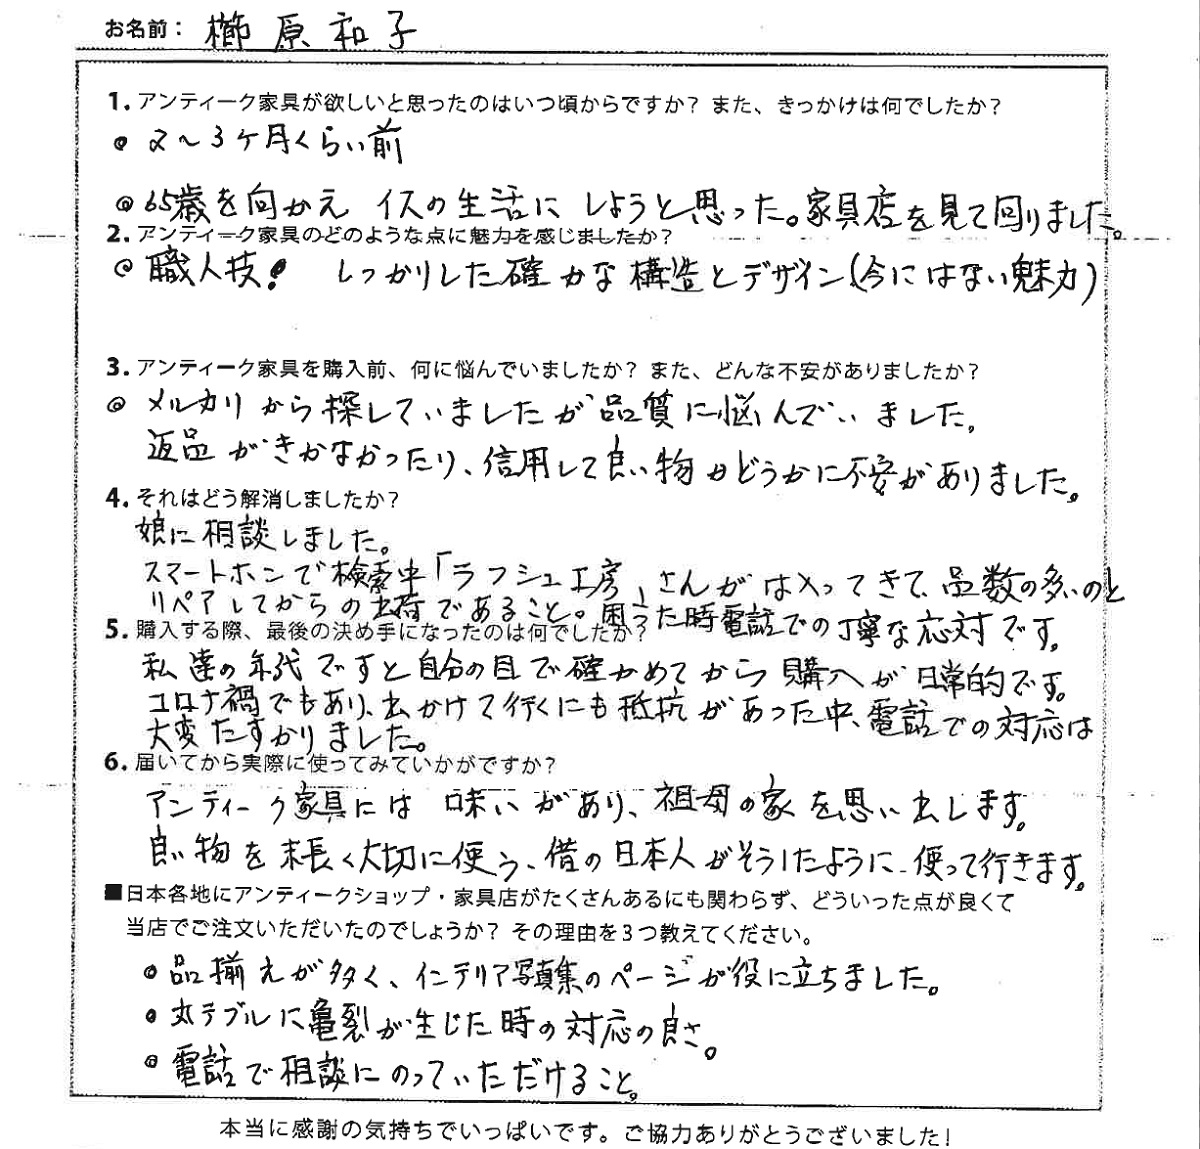 お名前： 櫛原和子
1. アンティーク家具が欲しいと思ったのはいつ頃からですか？ また、きっかけは何でしたか？
2〜3ケ月くらい前
65歳を向かえ イスの生活に しようと思った。家具店を見て回りました。
2. アンティーク家具のどのような点に魅力を感じましたか？
職人技! しっかりした確かな構造とデザイン(今にはない魅力)
3. アンティーク家具を購入前、何に悩んでいましたか？ また、どんな不安がありましたか？
メルカリから探していましたが品質に悩んでいました。
返品がきかなかったり、信用して良い物かどうかに不安がありました。
4. それはどう解消しましたか？
娘に相談しました。
スマートホンで検索中「ラフジュ工房」さんがは入ってきて、品数の多いのと
リペアしてからの出荷であること。困った時電話での丁寧な応対です。
5. 購入する際、最後の決め手になったのは何でしたか？
私達の年代ですと自分の目で確かめてから購入が日常的です。
コロナ禍でもあり、出かけて行くにも抵抗があった中、電話での対応は
大変たすかりました。
6. 届いてから実際に使ってみていかがですか？
アンティーク家具には 味いがあり、祖母の家を思い出します。
良い物を末長く大切に使う、昔の日本人がそうしたように使って行きます。
■日本各地にアンティークショップ・家具店がたくさんあるにも関わらず、どういった点が良くて
当店でご注文いただいたのでしょうか？ その理由を3つ教えてください。
品揃えが多く、インテリア写真集のページが役に立ちました。
丸テブルに亀裂が生じた時の対応の良さ。
電話で相談にのっていただけること。
本当に感謝の気持ちでいっぱいです。ご協力ありがとうございました！